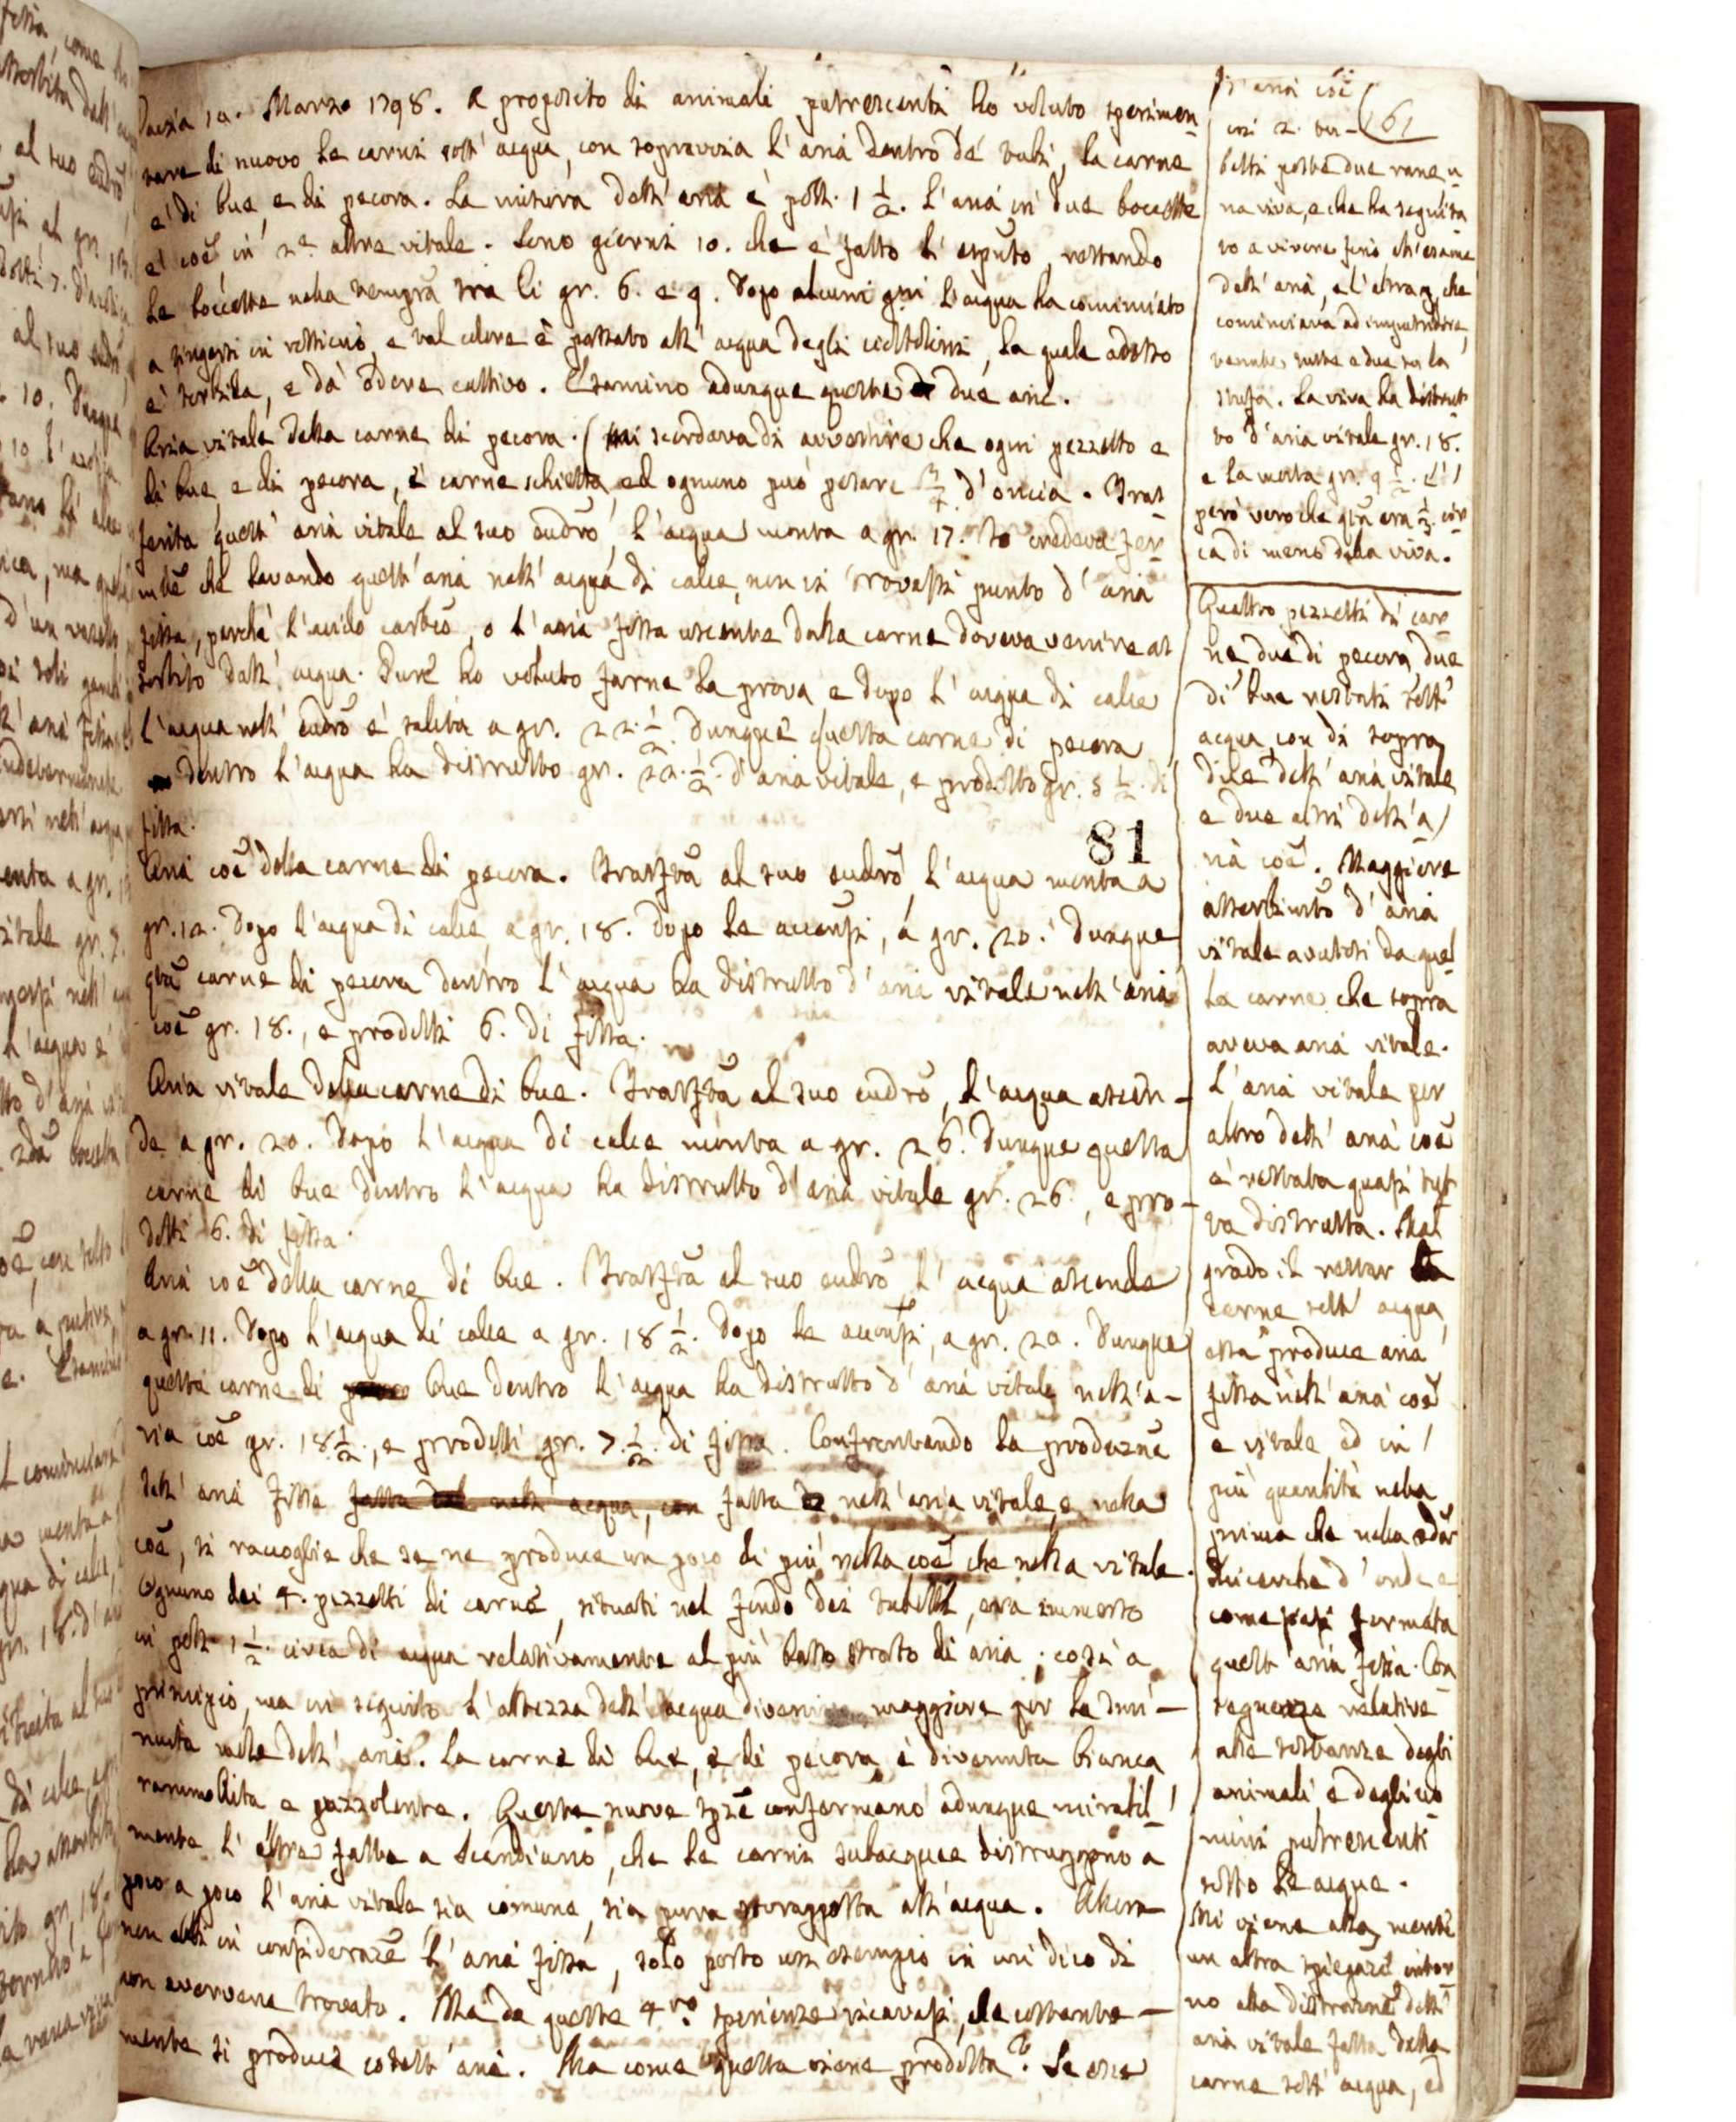 Pavia 10. Marzo 1798. A proposito di animali putrescenti ho voluto sperimen-
tare di nuovo le carni sott' acqua, con sopravvia l' aria dentro de' tubi, la carne
è di bue, e di pecora. La misura dell' aria è poll. 1 1/2. L' aria in due boccette
è coē in 2e altre vitale. Sono giorni 10. che è fatto l' esputo, restando
le boccette nella tra li gr. 6. e 9. Dopo alcuni gni l'acqua ha cominciato
a tingersi in rossiccio, e tal colore è passato all' acqua degli, la quale adesso
è torbida, e dà odore cattivo. Esamino adunque queste due arie.
Aria vitale della carne di pecora. (Mi scordava di avvertire che ogni pezzetto e
di bue, e di pecora, è carne schietta, ed ognuno può pesare d' oncia. Tras-
ferita quest' aria vitale al suo eudrō, l' acqua monta a gr. 17. Io credeva fer-
mtē che lavando quest' aria nell' acqua di calce, non vi trovassi punto d' aria
fissa, perchè l' acido carbcō, o l' aria fissa uscente dalla carne doveva venire as-
sorbito dall' acqua. Pure ho voluto farne la prova, e dopo l' acqua di calce
l'acqua nell' eudrō è salita a gr. 22. 1/2. Dunque questa carne di pecora
dentro l' acqua ha distrutto gr. 22. 1/2. d' aria vitale, e prodotto gr. 5 1/2. di
fissa.
81
Aria coē della carne di pecora. Trasftā al suo eudrō, l' acqua monta a
gr. 12. Dopo l' acqua di calce a gr. 18. Dopo le accensi, a gr. 20. Dunque
qtā carne di pecora dentro l' acqua ha distrutto d' aria vitale nell' aria
coē gr. 18., e prodotti 6. di fissa.
Aria vitale della carne di bue. Trasftā al suo eudrō, l' acqua ascen-
de a gr. 20. Dopo l' acqua di calce monta a gr. 26. Dunque questa
carne di bue dentro l' acqua ha distrutto d' aria vitale gr. 26., e pro-
dotti 6. di fissa.
Aria coē della carne di bue. Trasftā al suo eudrō l' acqua ascende
a gr. 11. Dopo l' acqua di calce a gr. 18 1/2. Dopo le accensi, a gr. 20. Dunque
questa carne di bue dentro l' acqua ha distrutto d' aria vitale nell' a-
ria coē gr. 18 1/2., e prodotti gr. 7. 1/2. di fissa. Confrontando la produznē
dell' aria fissa fatta nell' acqua, con fatta nell' aria vitale, e nella
coē, si raccoglie che se ne produce un poco di più nella coē che nella vitale.
Ognuno dei 4. pezzetti di carne, situati nel fondo dei tubetti, era immerso
in poll. 1 1/2 circa di acqua relativamente al più basso strato di aria; così a
principio, ma in seguito l' altezza dell' acqua maggiore per la dimi-
nuita mole dell' aria. La carne di bue, e di pecora è divenuta bianca
rammollita e puzzolente. Queste nuove spzē confermano adunque mirabil-
mente l' altre fatte a Scandiano, che le carni subacquee distruggono a
poco a poco l' aria vitale sia comune, sia pura sovrapposta all' acqua. Allora
non ebbi in considerazē l' aria fissa, solo porto un esempio in cui dico di
non avervene trovato. Ma da queste 4.ro sperienze ricavasi, che costante-
mente si produce codest' aria. Ma come questa viene prodotta? Se esce
161
d' aria coē
in 2. tu-
betti poste due rane u-
na viva, e che ha seguita-
to a vivere fino all' esame
dell' aria, e l' altra, che
cominciava ad imputridire,
tutte e due su la
stufa. La viva ha distrut-
to d' aria vitale gr. 18.
e la morta gr. 9 1/2. È
però vero che qta era 1/3. cir-
ca di meno della viva.
Quattro pezzetti di car-
ne, due di pecora, due
di bue restati sott'
acqua, con di sopra
due dell' aria vitale
e due altri dell' a-
ria coē. Maggiore
assorbimtō d' aria
vitale avutosi da quel-
la carne che sopra
aveva aria vitale.
L' aria vitale per
altro dell' aria coē
è restata quasi tut-
ta distrutta. Mal
grado il restar
carne sott' acqua,
essa produce aria
fissa nell' aria coē
e vitale ed in
più quantità nella
prima che nella 2da.
Ricerche d' onde e
come siasi formata
quest' aria fissa. Con-
seguenze relative
alle sostanze degli
animali, e degli uo-
mini putrescenti
sotto le acque.
Mi viene alla mente
un altra spiegazē intor-
no alla distruznē dell'
aria vitale fatta dalla
carne sott' acqua, ed